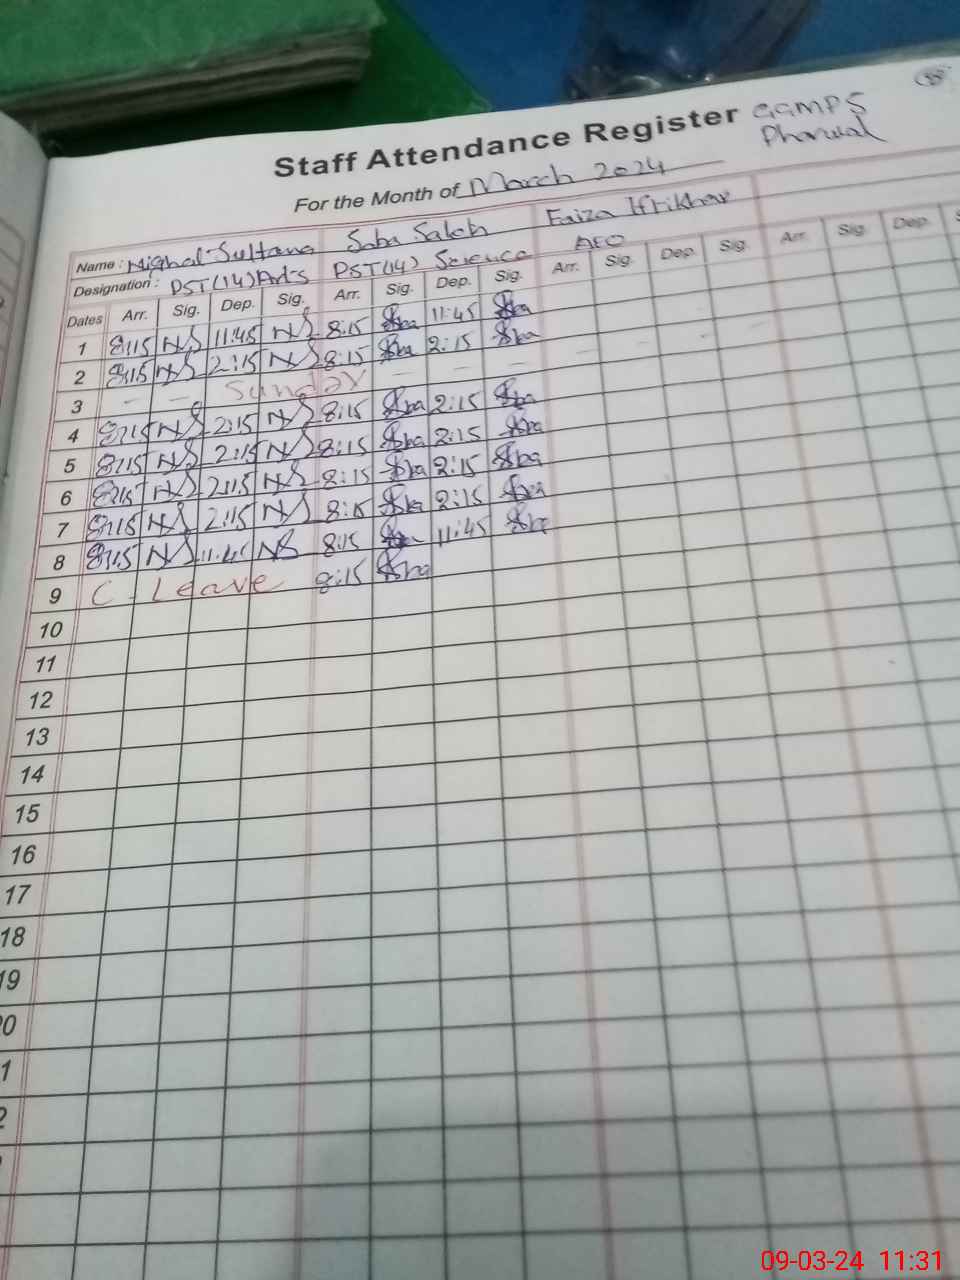 Staff Attendance Register GGMPS
Dharwal
For the Month of March 2024
Name : Nighat Sultana Saba Saleh Faiza Iftikhar
Designation : PST(14) Arts PST(14) Science AEO
Dates Arr. Sig. Dep. Sig. Arr. Sig. Dep. Sig. Arr. Sig. Dep. Sig. Arr. Sig. Dep. S
1 8:15 NS 11:45 NS 8:15 Sba 11:45 Sba
2 8:15 NS 2:15 NS 8:15 Sba 2:15 Sba
3 – – Sunday – – –
4 8:15 NS 2:15 NS 8:15 Sba 2:15 Sba
5 8:15 NS 2:15 NS 8:15 Sba 2:15 Sba
6 8:15 NS 2:15 NS 8:15 Sba 2:15 Sba
7 8:15 NS 2:15 NS 8:15 Sba 2:15 Sba
8 8:15 NS 11:45 NS 8:15 Sba 11:45 Sba
9 C - Leave 8:15 Sba
10
11
12
13
14
15
16
17
18
19
0
1
2
09-03-24 11:31